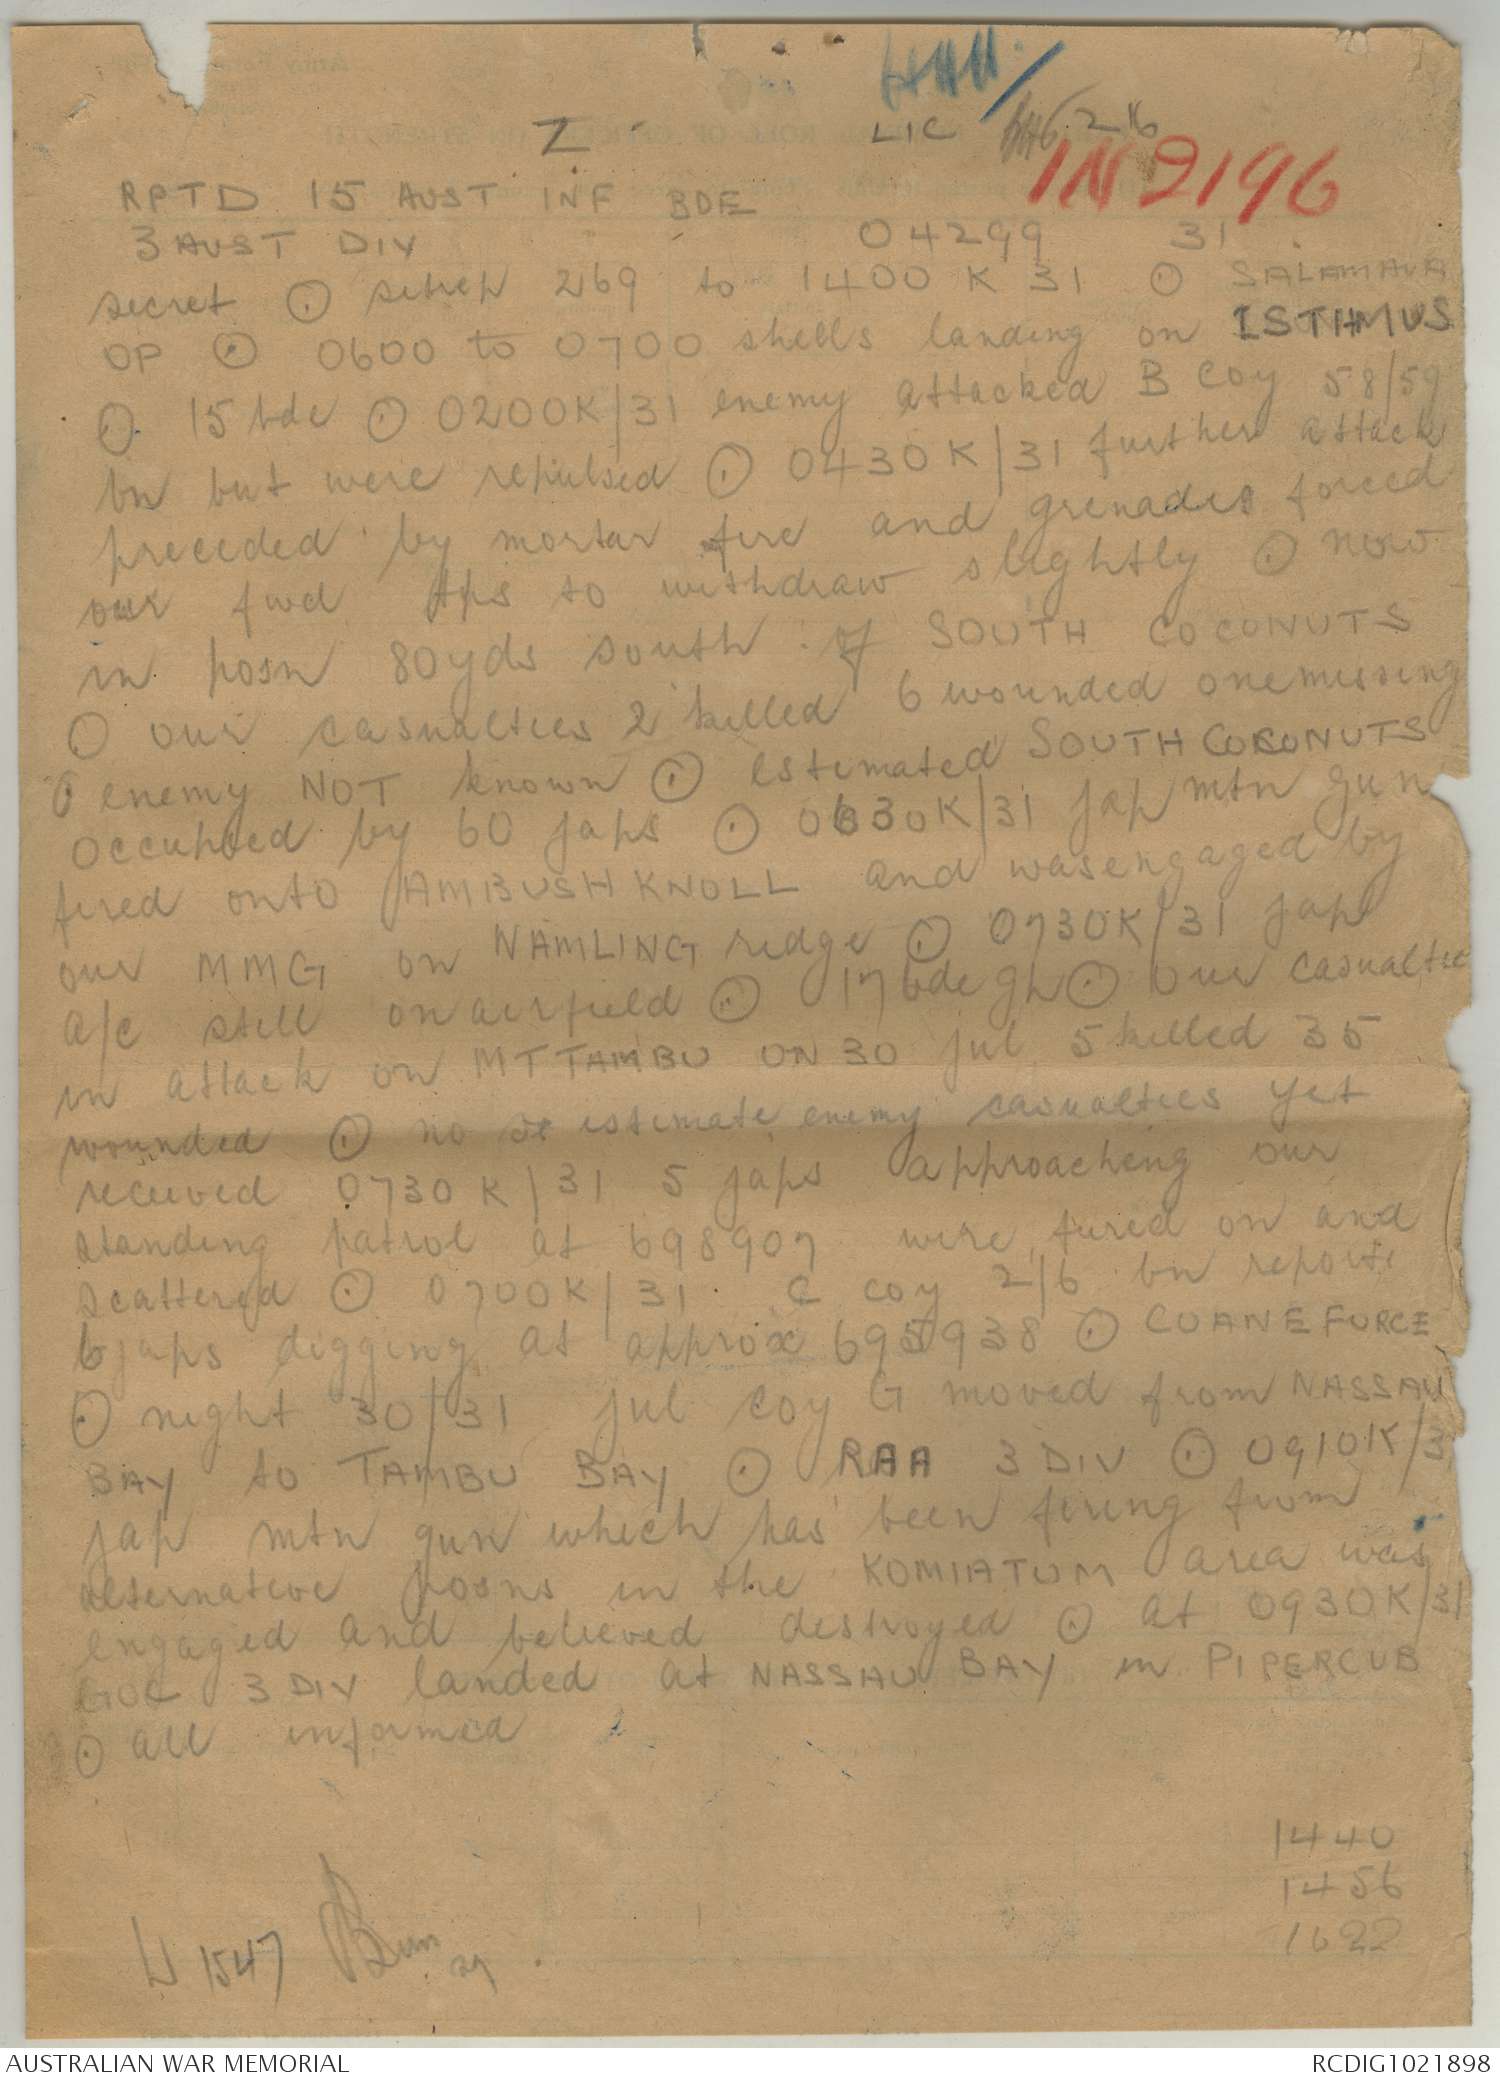 Z
LIC
216
IN 2196
RPTD 15 AUST INF BDE
3 AUST DIV 04299 31
secret ⊙ sitrep 269 to 1400 K 31 ⊙ SALAMAUA
OP ⊙ 0600 to 0700 shells landing on ISTHMUS
⊙ 15 bde ⊙ 0200K/31 enemy attacked B Coy 58/59
bn but were repulsed ⊙ 0430K/31 further attack
preceded by mortar fire and grenades forced
our fwd tps to withdraw slightly ⊙ now
in posn 80yds south of SOUTH COCONUTS
⊙ our casualties 2 killed 6 wounded one missing
⊙ enemy NOT known ⊙ estimated SOUTH COCONUTS
occupied by 60 japs ⊙ 0630K/31 jap mtn gun
fired onto AMBUSH KNOLL and was engaged by
our MMG on NAMLING ridge ⊙ 0730K/31 jap
a/c still on airfield ⊙ 17 bde gh ⊙ our casualties
in attack on MT TAMBU ON 30 jul 5 killed 35
wounded ⊙ no estimate enemy casualties yet
received 0730K/31 5 japs approaching our
standing patrol at 698907 were fired on and
scattered ⊙ 0700K/31 C coy 2/6 bn reports
6 japs digging at approx 695938 ⊙ COANEFORCE
⊙ night 30/31 jul coy G moved from NASSAU
BAY to TAMBU BAY ⊙ RAA 3 DIV ⊙ 0910K/3
jap mtn gun which has been firing from
alternative posns in the KOMIATUM area was
engaged and believed destroyed ⊙ at 0930K/31
GOC 3 DIV landed at NASSAU BAY in PIPERCUB
⊙ all informed
1440
1456
1622
W 1547
AUSTRALIAN WAR MEMORIAL RCDIG1021898